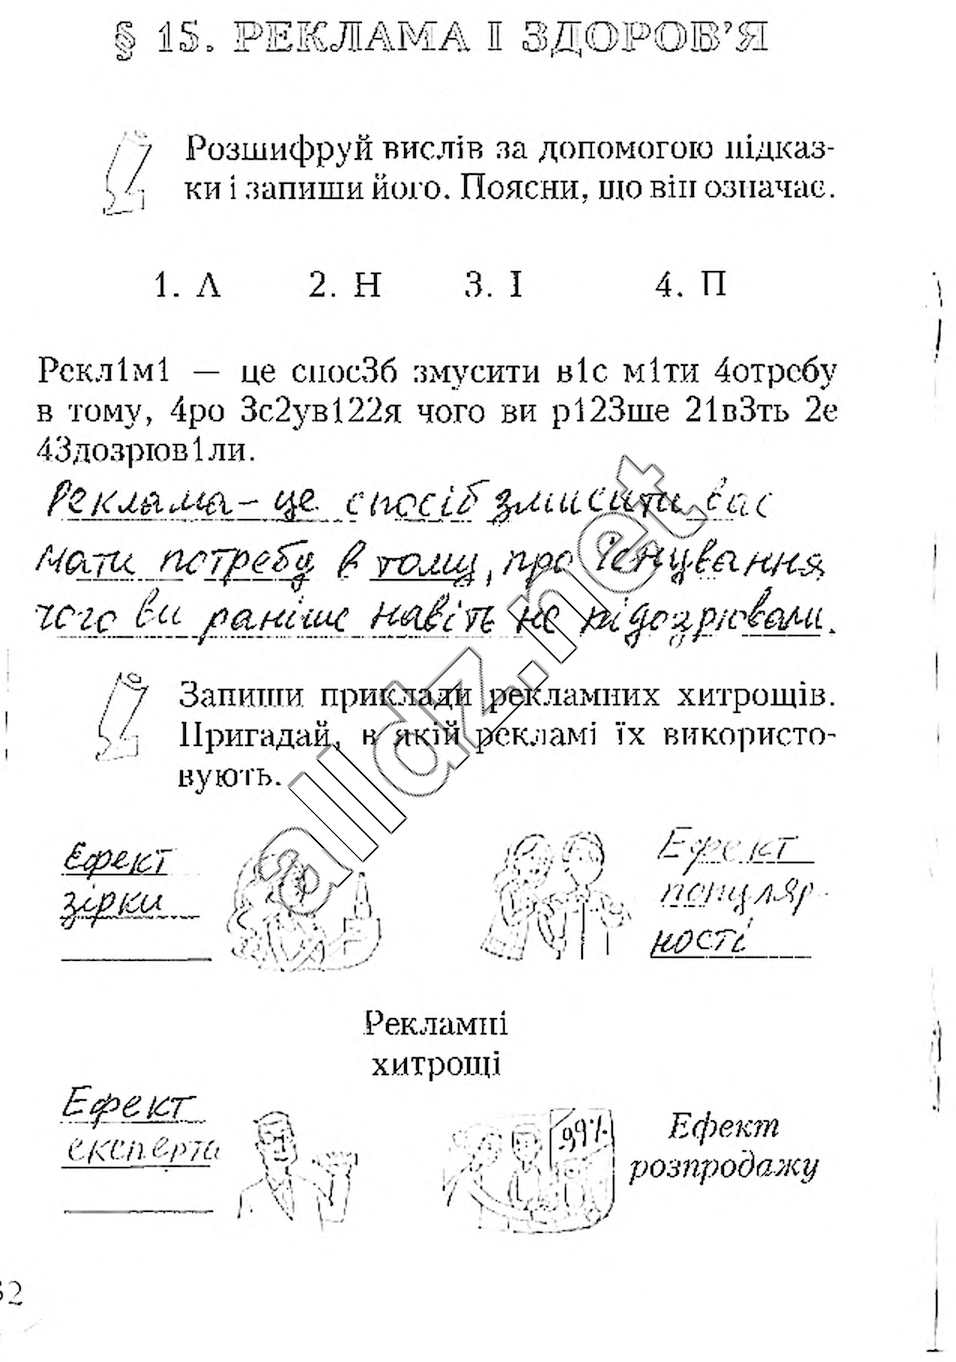 § 15. РЕКЛАМА І ЗДОРОВ'Я
Розшифруй вислів за допомогою підказ-
ки і запиши його. Поясни, що він означає.
1. А 2. Н 3. І 4. П
Рекл1м1 — це спос3б змусити в1с м1ти 4отребу
в тому, 4ро 3с2ув122я чого ви р123ше 21в3ть 2е
43дозрюв1ли.
Реклама - це спосіб змусити вас
мати потребу в тому, про існування
чого ви раніше навіть не підозрювали.
Запиши приклади рекламних хитрощів.
Пригадай, в якій рекламі їх використо-
вують.
alldz.net
Ефект
зірки
Ефект
популяр-
ності
Рекламні
хитрощі
Ефект
експерта
99%
Ефект
розпродажу
32